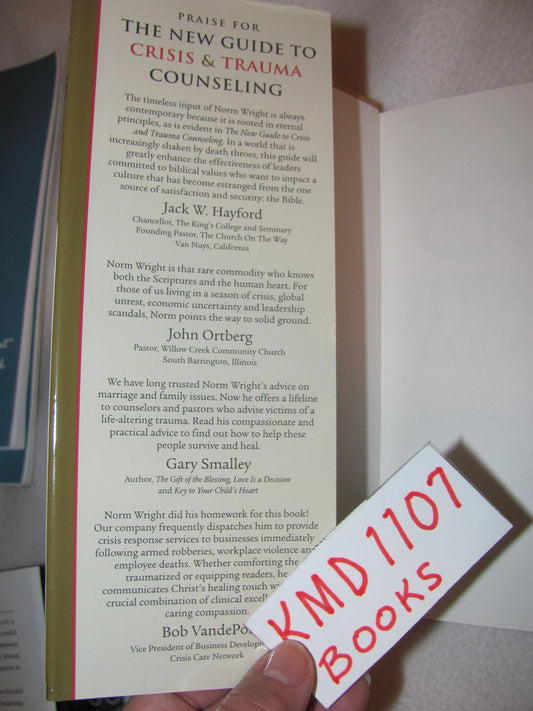 PRAISE FOR
THE NEW GUIDE TO
CRISIS & TRAUMA
COUNSELING
The timeless input of Norm Wright is always
contemporary because it is rooted in eternal
principles, as is evident in The New Guide to Crisis
and Trauma Counseling. In a world that is
increasingly shaken by death throes, this guide will
greatly enhance the effectiveness of leaders
committed to biblical values who want to impact a
culture that has become estranged from the one
source of satisfaction and security: the Bible.
Jack W. Hayford
Chancellor, The King's College and Seminary
Founding Pastor, The Church On The Way
Van Nuys, California
Norm Wright is that rare commodity who knows
both the Scriptures and the human heart. For
those of us living in a season of crisis, global
unrest, economic uncertainty and leadership
scandals, Norm points the way to solid ground.
John Ortberg
Pastor, Willow Creek Community Church
South Barrington, Illinois
We have long trusted Norm Wright's advice on
marriage and family issues. Now he offers a lifeline
to counselors and pastors who advise victims of a
life-altering trauma. Read his compassionate and
practical advice to find out how to help these
people survive and heal.
Gary Smalley
Author, The Gift of the Blessing, Love Is a Decision
and Key to Your Child's Heart
Norm Wright did his homework for this book!
Our company frequently dispatches him to provide
crisis response services to businesses immediately
following armed robberies, workplace violence and
employee deaths. Whether comforting the
traumatized or equipping readers, he
communicates Christ's healing touch with
crucial combination of clinical
caring compassion.
Bob
Vice President of Business
Crisis Care Network
KMD 1107
BOOKS